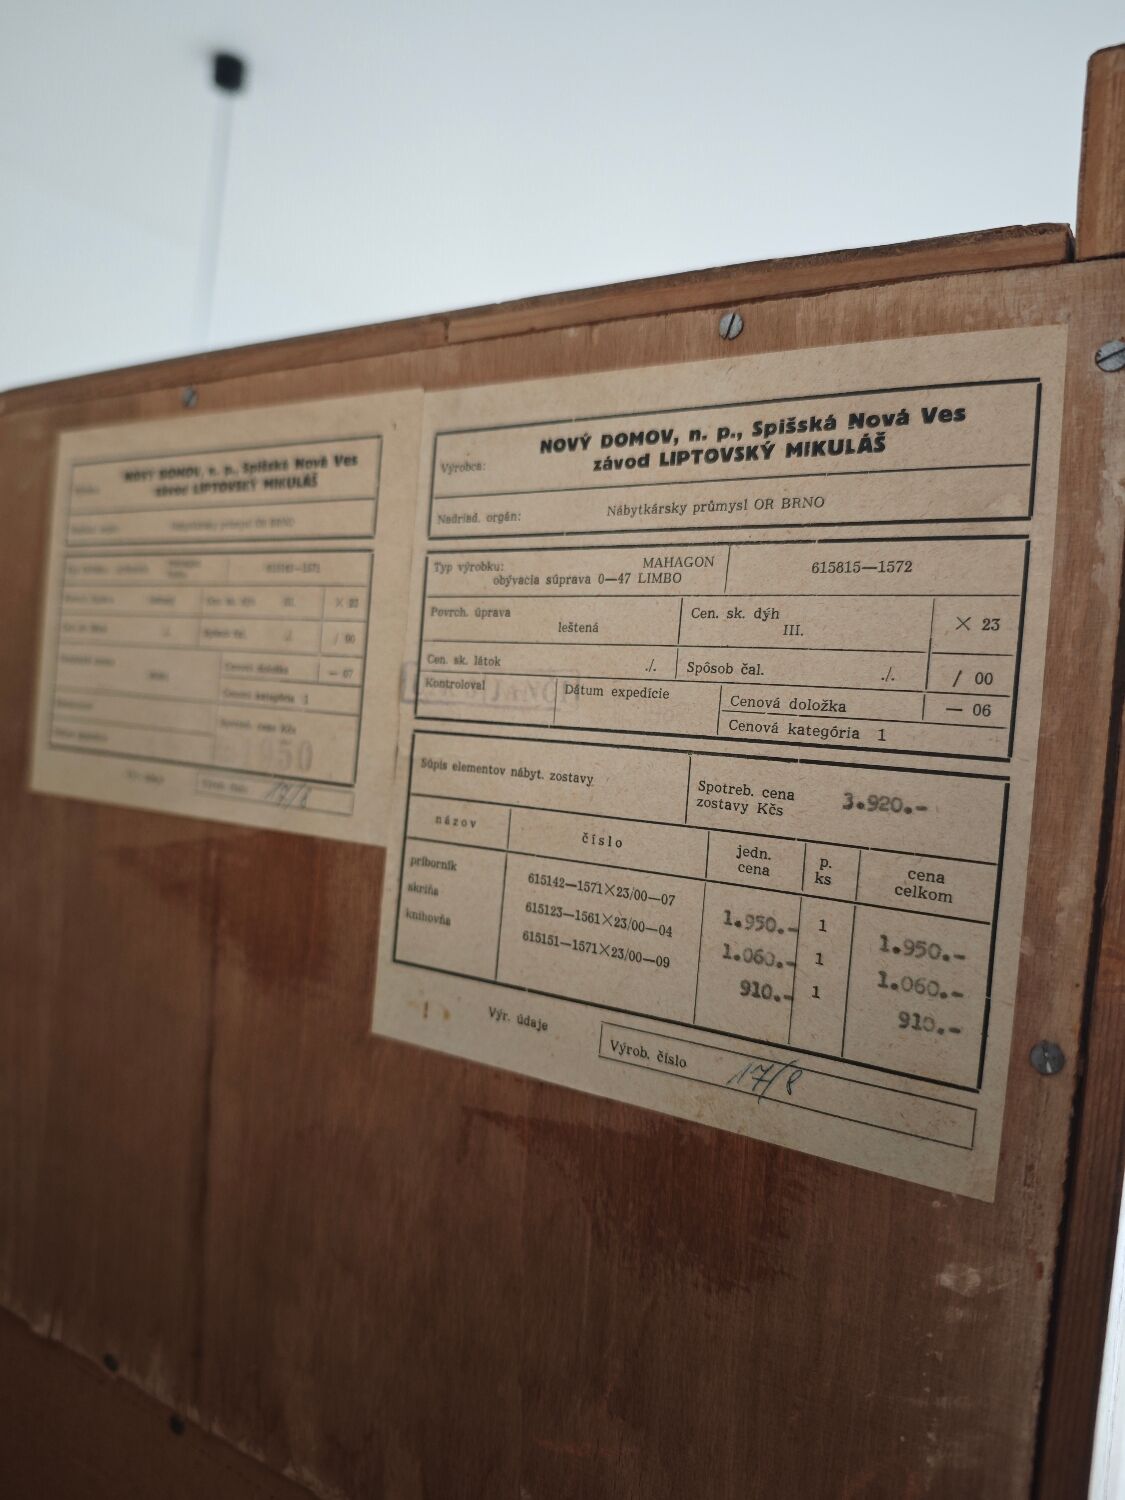 NOVÝ DOMOV, n. p., Spišská Nová Ves
závod LIPTOVSKÝ MIKULÁŠ
Nábytkársky průmysl OR BRNO
× 23
/ 00
— 07
Cenová doložka
Cenová kategória 1
1950
17/8
Výrobca:
NOVÝ DOMOV, n. p., Spišská Nová Ves
závod LIPTOVSKÝ MIKULÁŠ
Nadriad. orgán:
Nábytkársky průmysl OR BRNO
Typ výrobku:
MAHAGON
obývacia súprava 0—47 LIMBO
615815—1572
Povrch. úprava
leštená
Cen. sk. dýh
III.
× 23
Cen. sk. látok
./.
Spôsob čal.
./.
/ 00
Kontroloval
Dátum expedície
Cenová doložka
— 06
Cenová kategória 1
Súpis elementov nábyt. zostavy
Spotreb. cena
zostavy Kčs
3.920.-
názov
číslo
jedn.
cena
p.
ks
cena
celkom
príborník 615142—1571×23/00—07 1.950.- 1 1.950.-
skriňa 615123—1561×23/00—04 1.060.- 1 1.060.-
knihovňa 615151—1571×23/00—09 910.- 1 910.-
Výr. údaje
Výrob. číslo
17/8